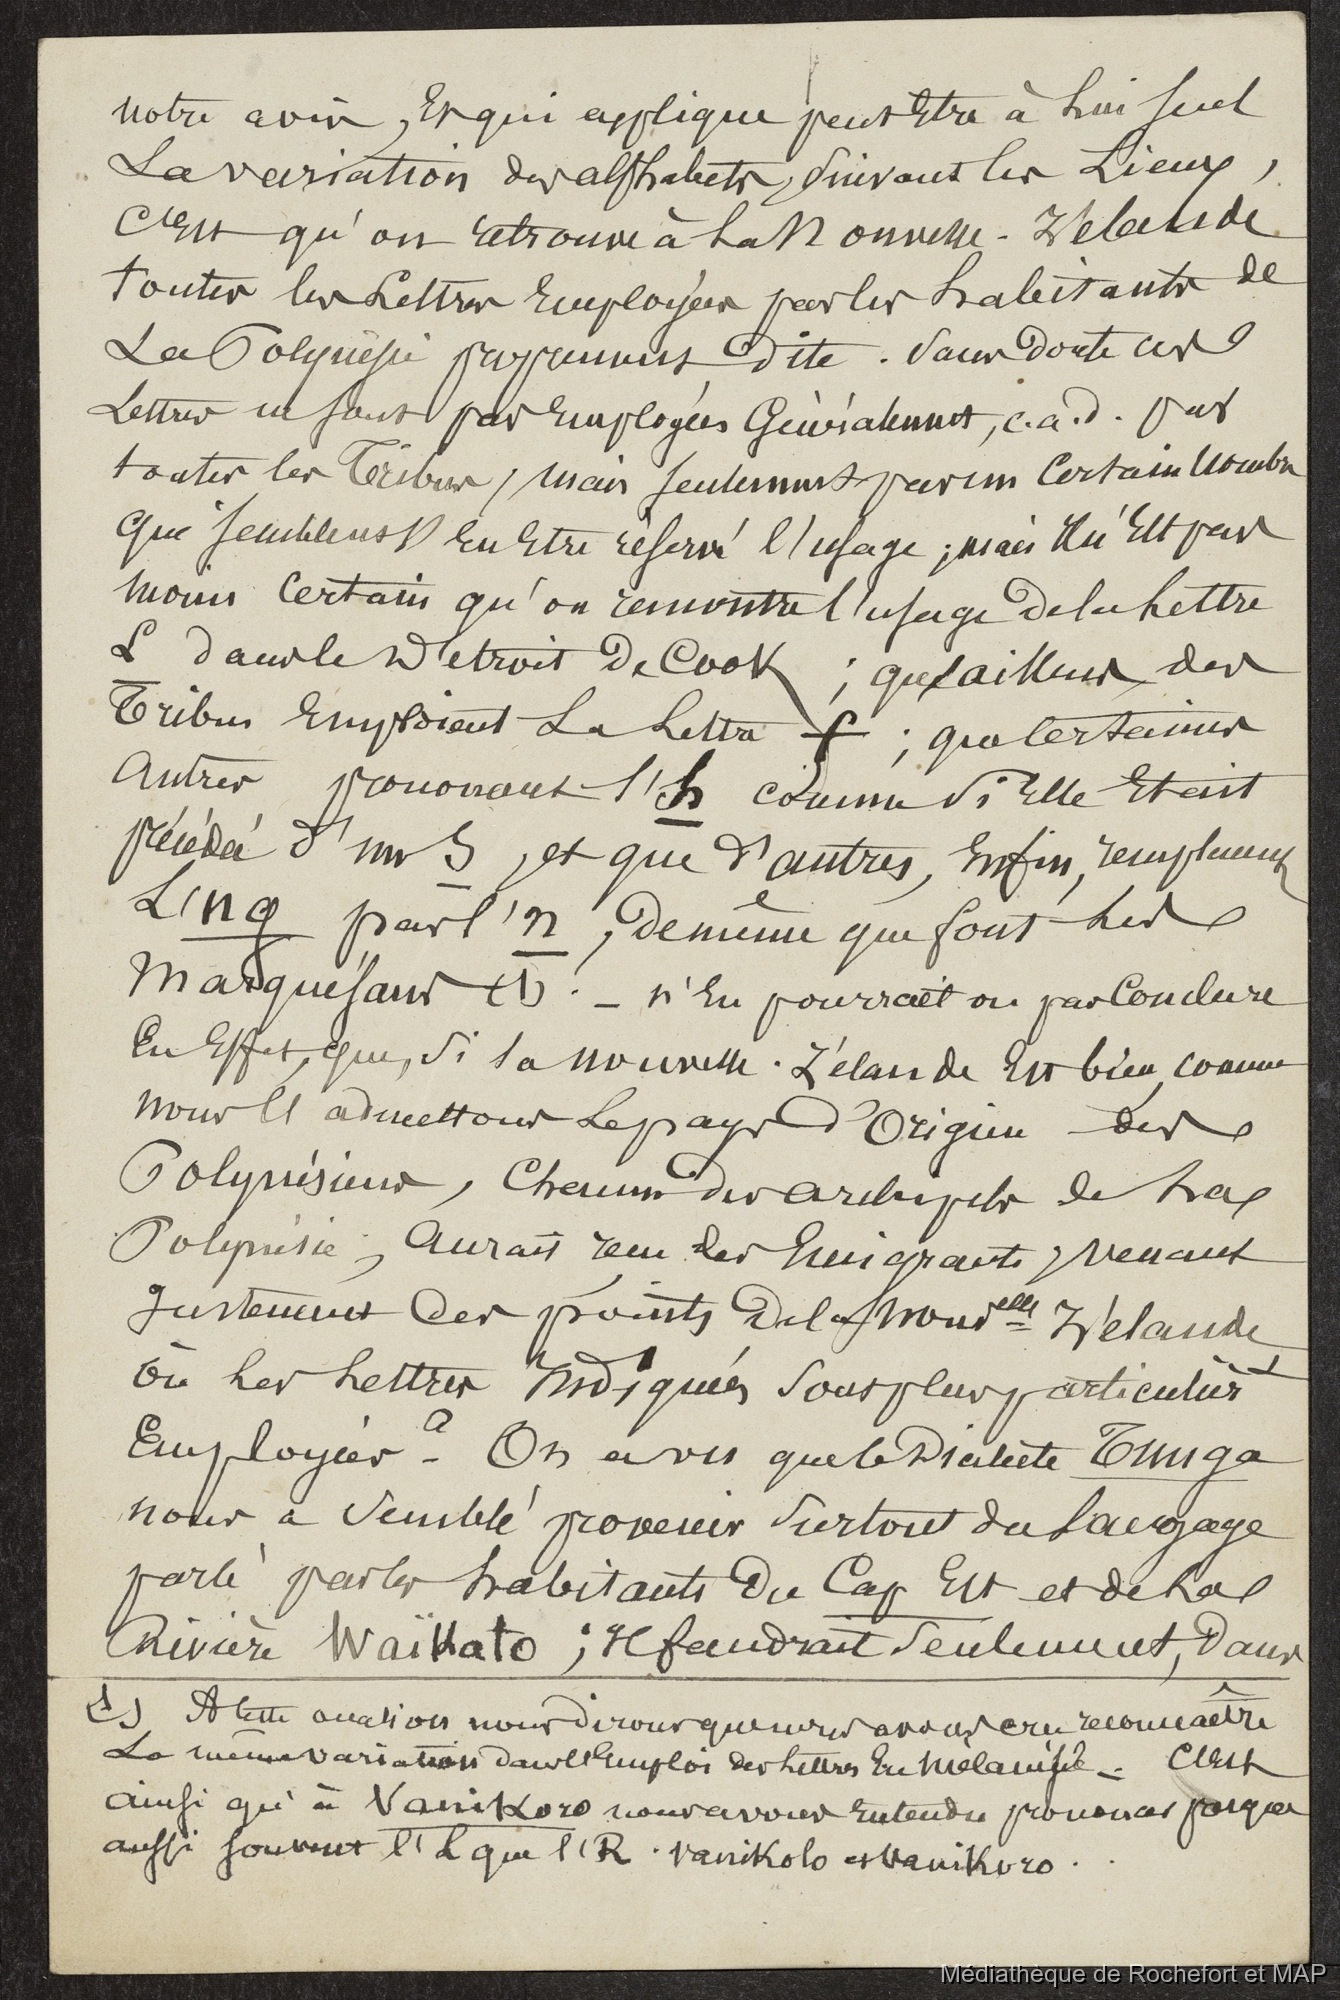 notre avis, Et qui explique peut Etre à lui seul
La variation des alphabets, suivant les Lieux,
C'Est qu'on retrouve à La Nouvelle-Zélande
toutes les Lettres Employées par les habitants de
La Polynésie proprement dite. Sans doute ces
Lettres ne sont pas Employées Généralement, c.a.d. par
toutes les Tribus, mais seulement par un Certain Nombre
qui semblent s'En Etre réservé l'usage; mais il n'Est pas
moins Certain qu'on remontre l'usage de la Lettre
L dans le Détroit De Cook; qu'ailleurs, des
Tribus Emploient La Lettre f; que Certaines
Autres prononcent l'h comme si Elle Etait
précédée d'un S, et que d'autres, Enfin, remplacent
L'ng par l'n, De même que font Les
Marquésans (1). - n'En pourrait on pas Conclure
En Effet, que, si la Nouvelle-Zélande Est bien, comme
nous l'admettons Le pays d'Origine des
Polynésiens, Chacun des archipels de La
Polynésie, Aurait reçu des Emigrants, venant
Justement Des points De la Nouvelle Zélande
Où Les Lettres Indiquées sont plus particulièrt
Employées. - On a vu que le Dialecte Tunga
nous a semblé provenir surtout du Langage
parlé par les habitants Du Cap Est et de La
Rivière Waïkato; Il faudrait seulement, Dans
(1) A Cette occasion nous Dirons que nous avons cru reconnaître
La même variation dans l'Emploi des Lettres En Mélanésie. - C'Est
ainsi qu'à Vanikoro nous avons Entendu prononcer presque
aussi souvent l'L que l'R. Vanikolo et Vanikoro.
Médiathèque de Rochefort et MAP